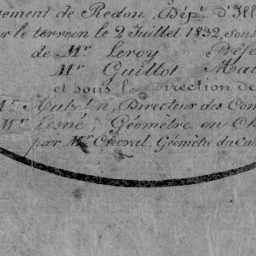 sement de Redon, Dépt. d'Ill
ur le terrein le 2 Juillet 1832, sous
de Mr. Leroy Préfe
Mr. Guillot Mai
et sous la Direction de
Mr. Directeur des Con
Mr. Lesné Géomètre en Ch
par Mr. Chorel, Géomètre du Cad